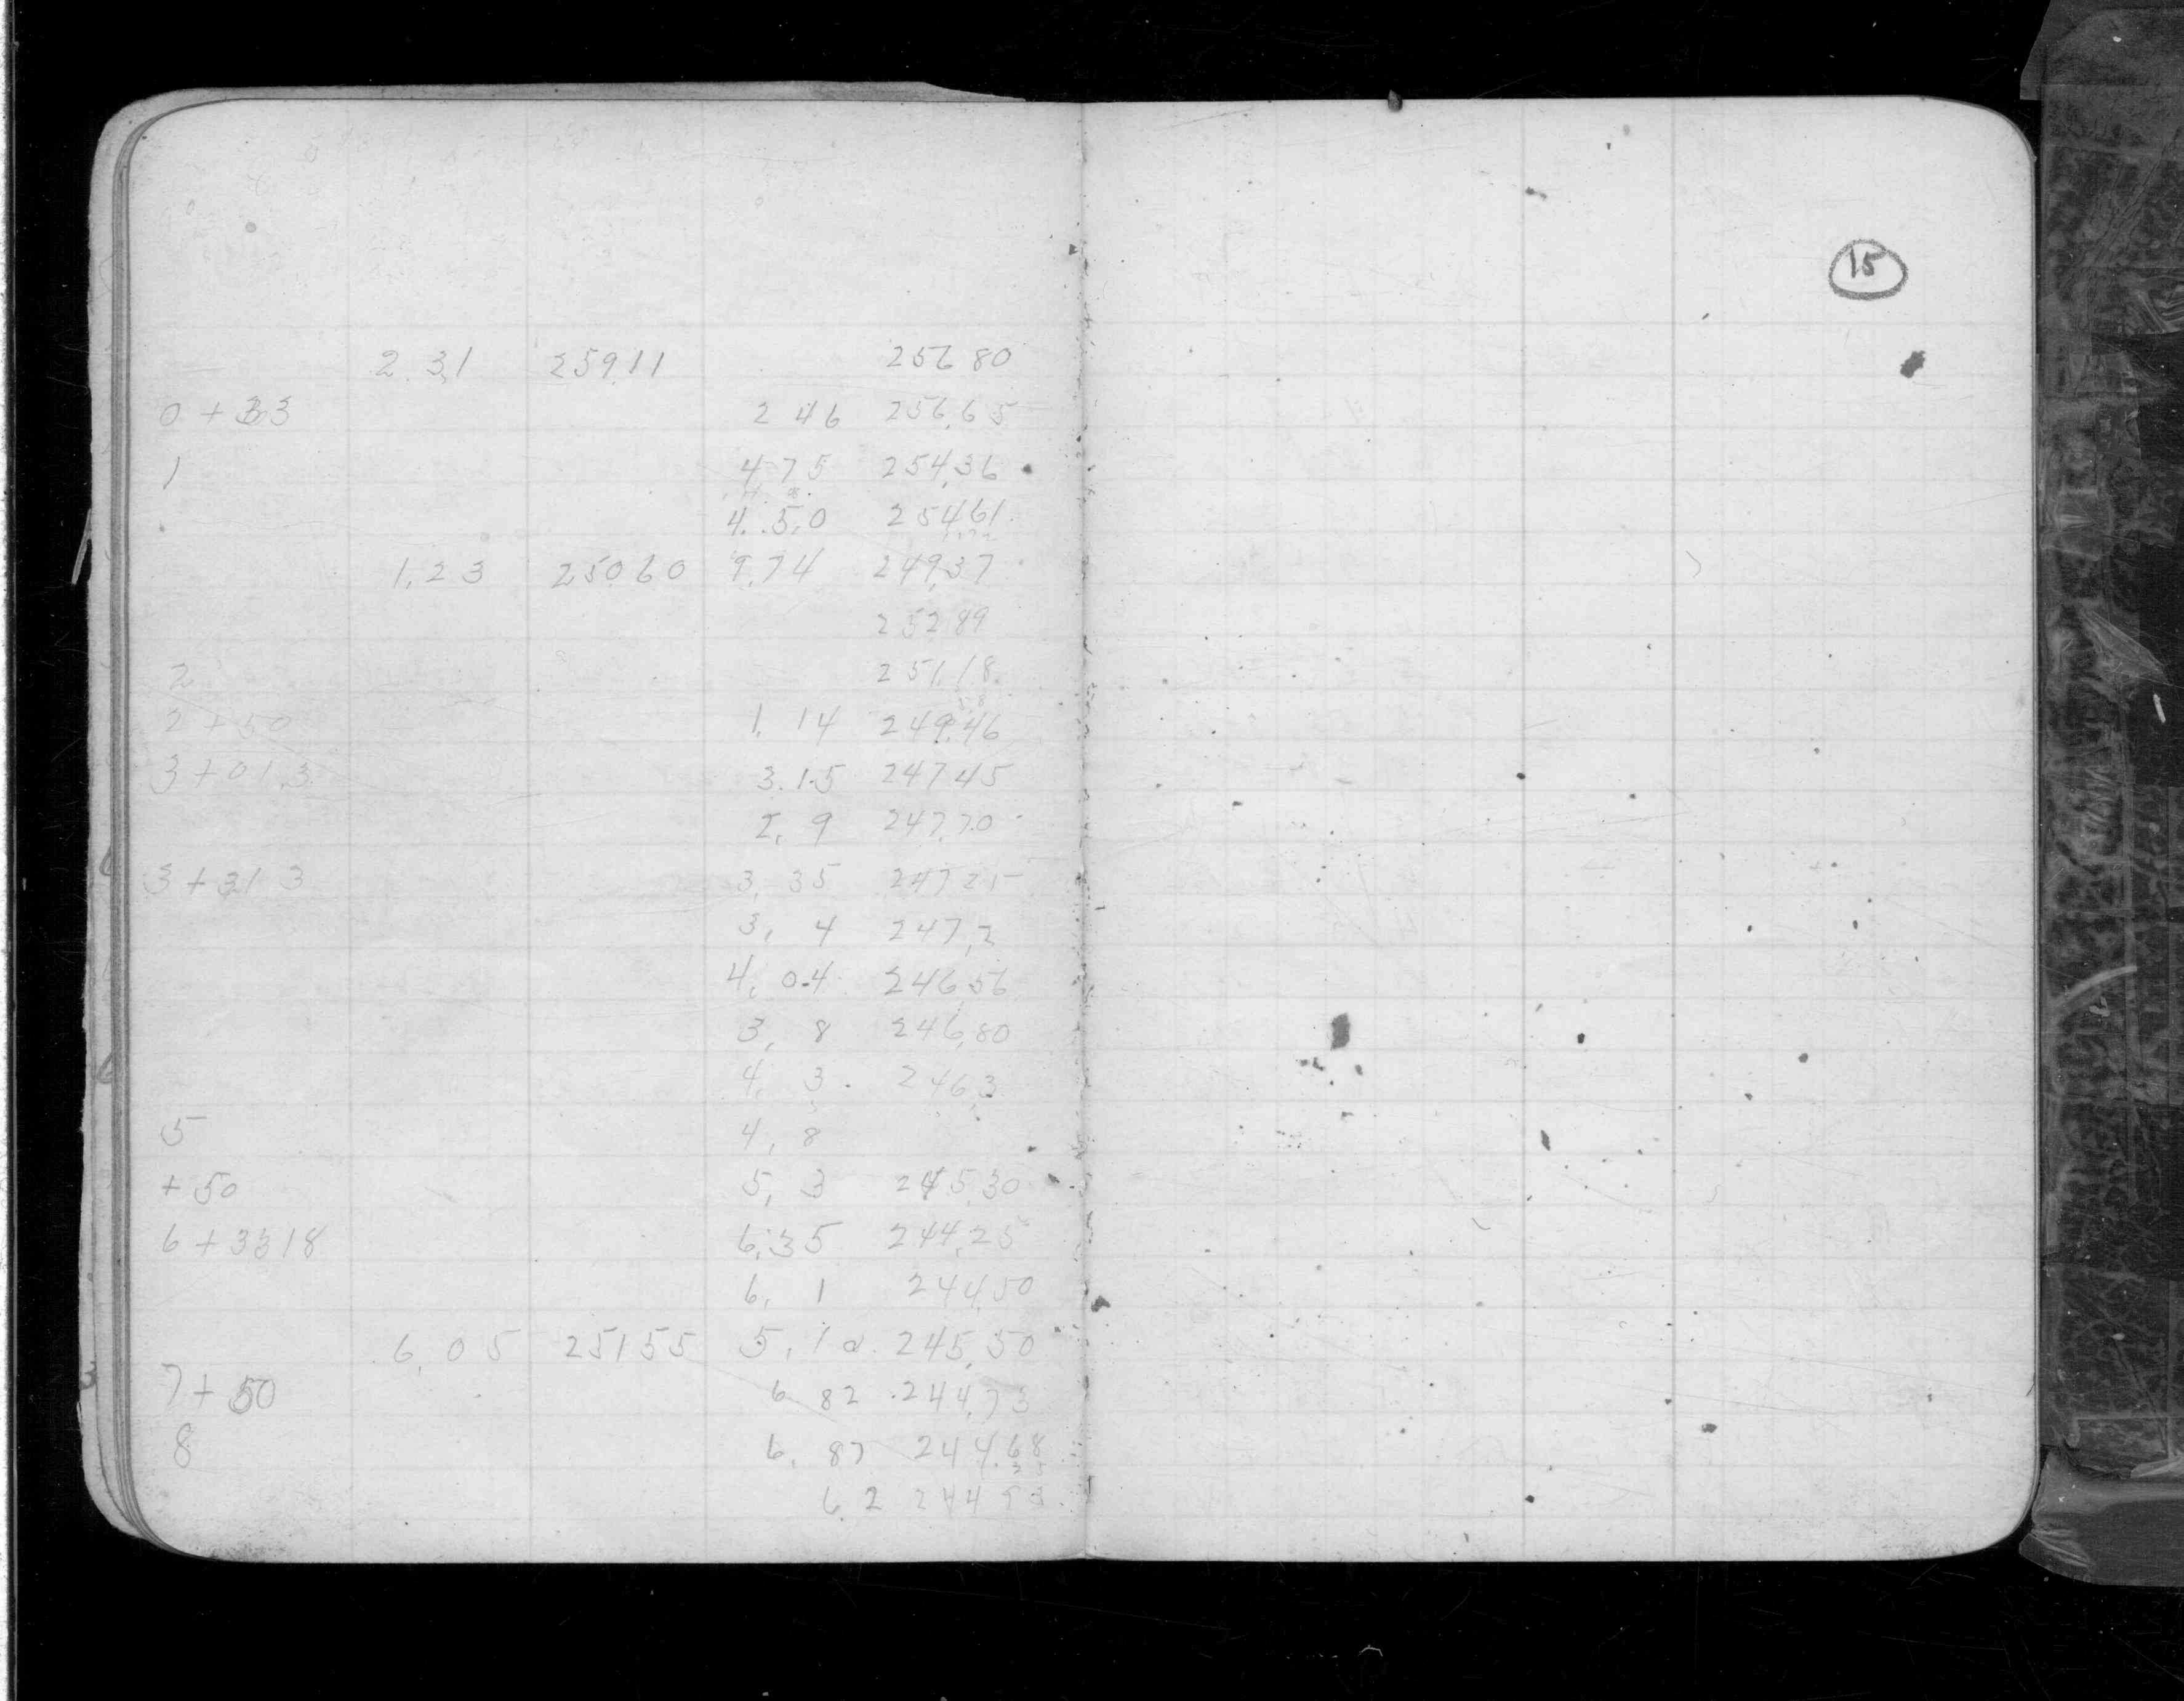 15
2.31 259.11 256 80
0 + 33 2 46 256.65
1 4 75 254.36
4.50 254.61
1.23 250.60 9.74 249.37
252 89
2 251.18
2 + 50 1.14 249.46
3 + 01.3 3.15 247.45
2.9 247.70
3 + 31 3 3.35 247 25
3.4 247.2
4.04 246.56
3.8 246.80
4.3 246.3
5 4.8
+ 50 5.3 245.30
6 + 33 18 6.35 244.25
6.1 244.50
6.05 251 55 5.10 245.50
7 + 50 6 82 244.73
8 6.87 244.68
6.2 244